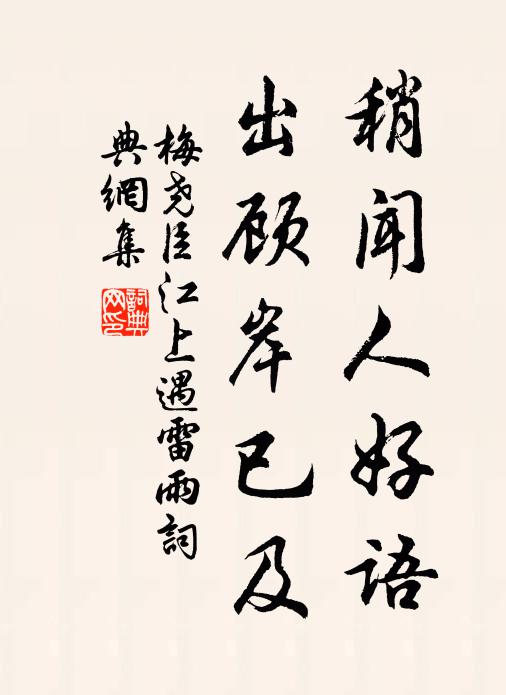 稍闻人好语
出顾岸已及
梅尧臣江上遇雷雨詞
典網集
詞典网印